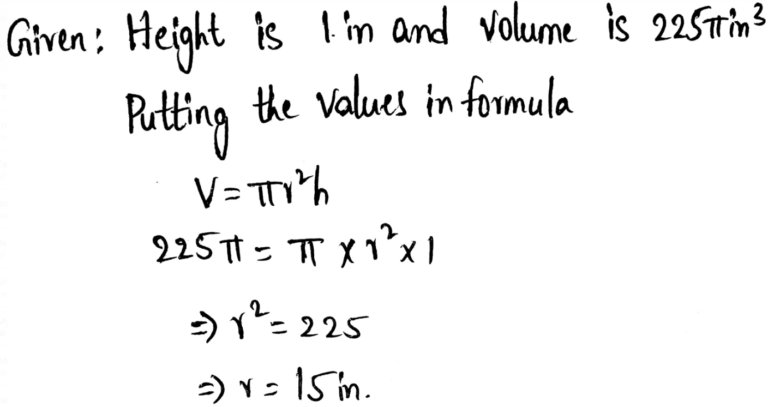 Given: Height is 1 in and volume is 225πin³
Putting the values in formula
V = πr²h
225π = π × r² × 1
⇒ r² = 225
⇒ r = 15 in.